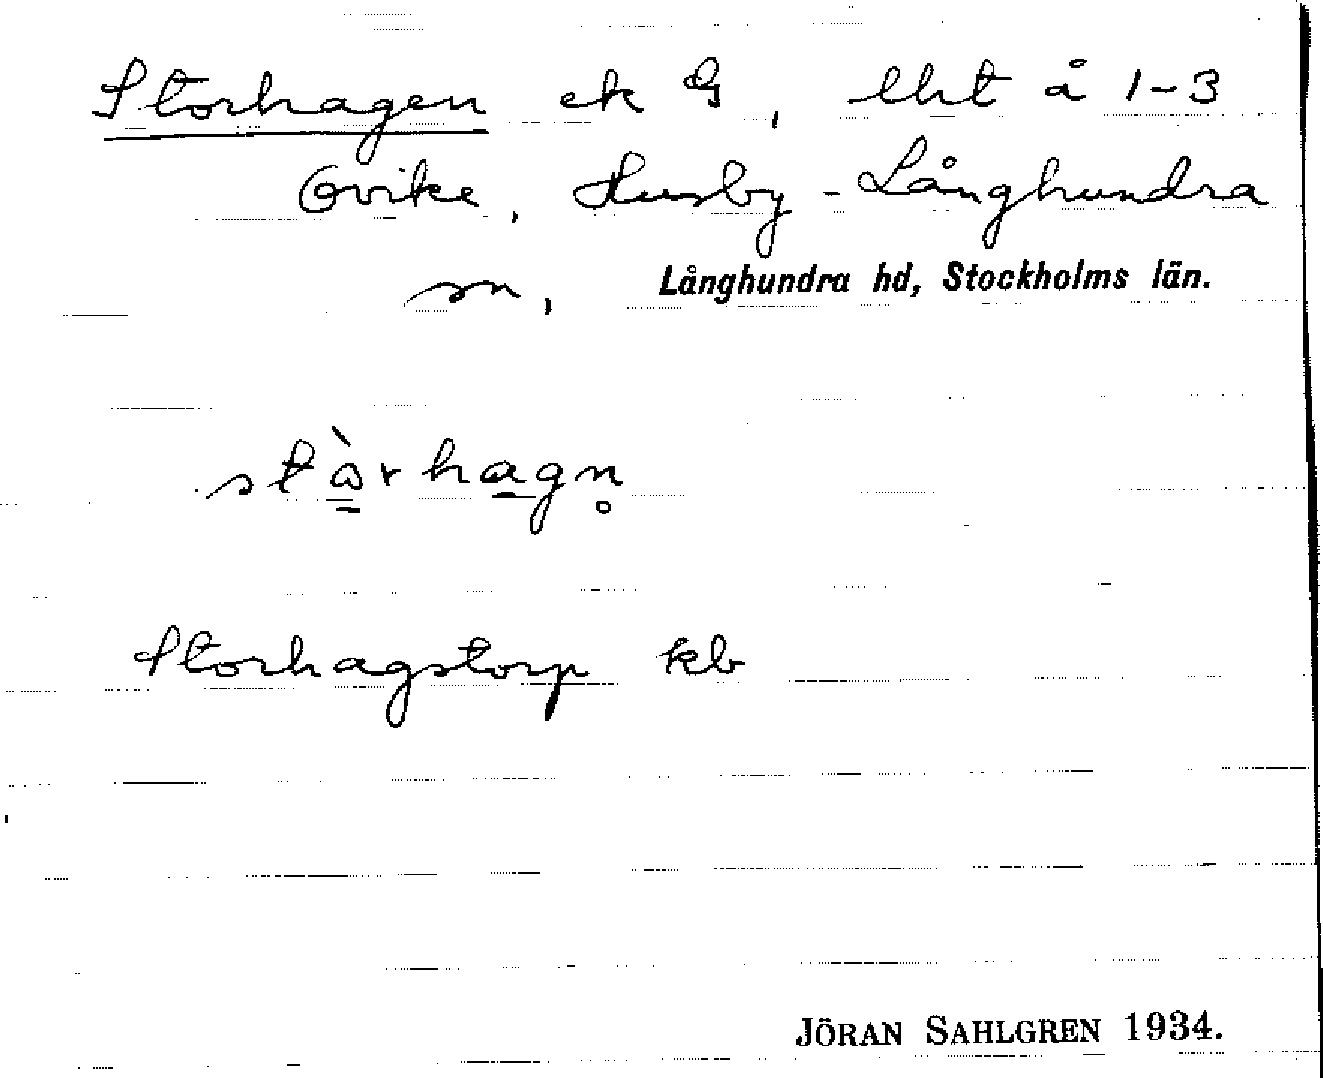 Storhagen ek G, lht å 1-3
Gvike, Husby-Långhundra
sn, Långhundra hd, Stockholms län.
stòrhagn̥
Storhagstorp kb
JÖRAN SAHLGREN 1934.